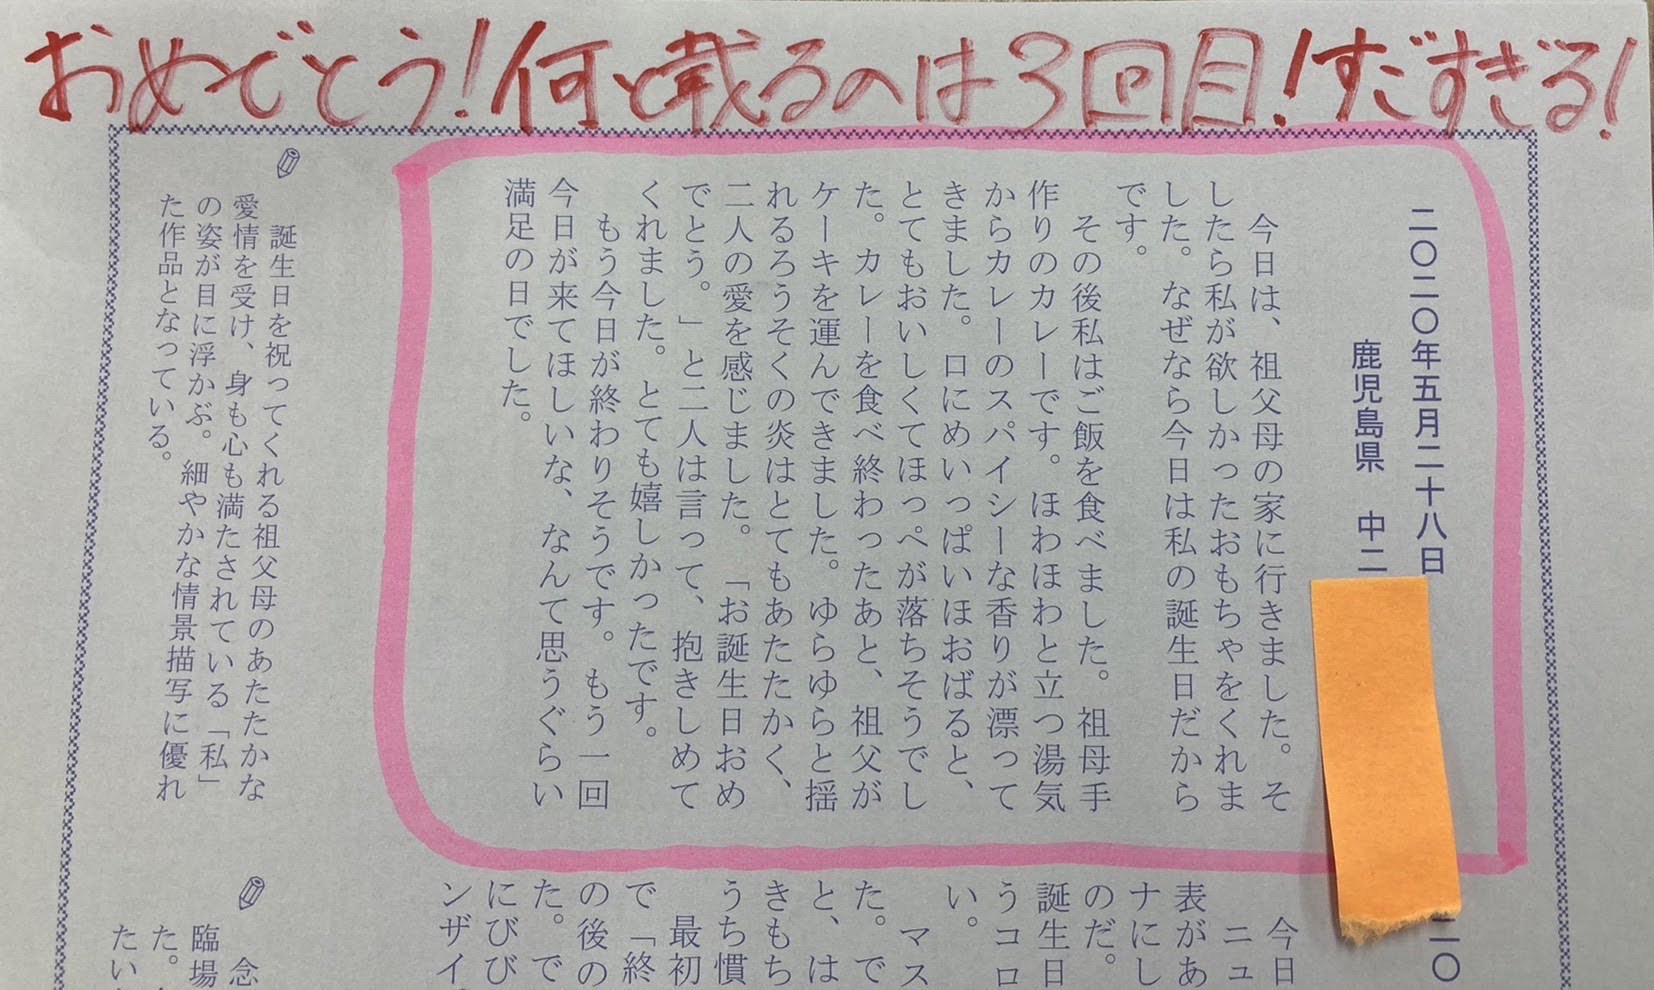 おめでとう!何と載るのは3回目!すごすぎる!
二〇二〇年五月二十八日
鹿児島県 中二
今日は、祖父母の家に行きました。そ
したら私が欲しかったおもちゃをくれま
した。なぜなら今日は私の誕生日だから
です。
その後私はご飯を食べました。祖母手
作りのカレーです。ほわほわと立つ湯気
からカレーのスパイシーな香りが漂って
きました。口にめいっぱいほおばると、
とてもおいしくてほっぺが落ちそうでし
た。カレーを食べ終わったあと、祖父が
ケーキを運んできました。ゆらゆらと揺
れるろうそくの炎はとてもあたたかく、
二人の愛を感じました。「お誕生日おめ
でとう。」と二人は言って、抱きしめて
くれました。とても嬉しかったです。
もう今日が終わりそうです。もう一回
今日が来てほしいな、なんて思うぐらい
満足の日でした。
誕生日を祝ってくれる祖父母のあたたかな
愛情を受け、身も心も満たされている「私」
の姿が目に浮かぶ。細やかな情景描写に優れ
た作品となっている。
二〇
今日
ニュ
表があ
ナにし
のだ。
誕生日
うコロ
い。
マス
た。で
と、は
きもち
うち慣
最初
で「終
の後の
た。で
にびび
ンザイ
念
臨場
た。
たい